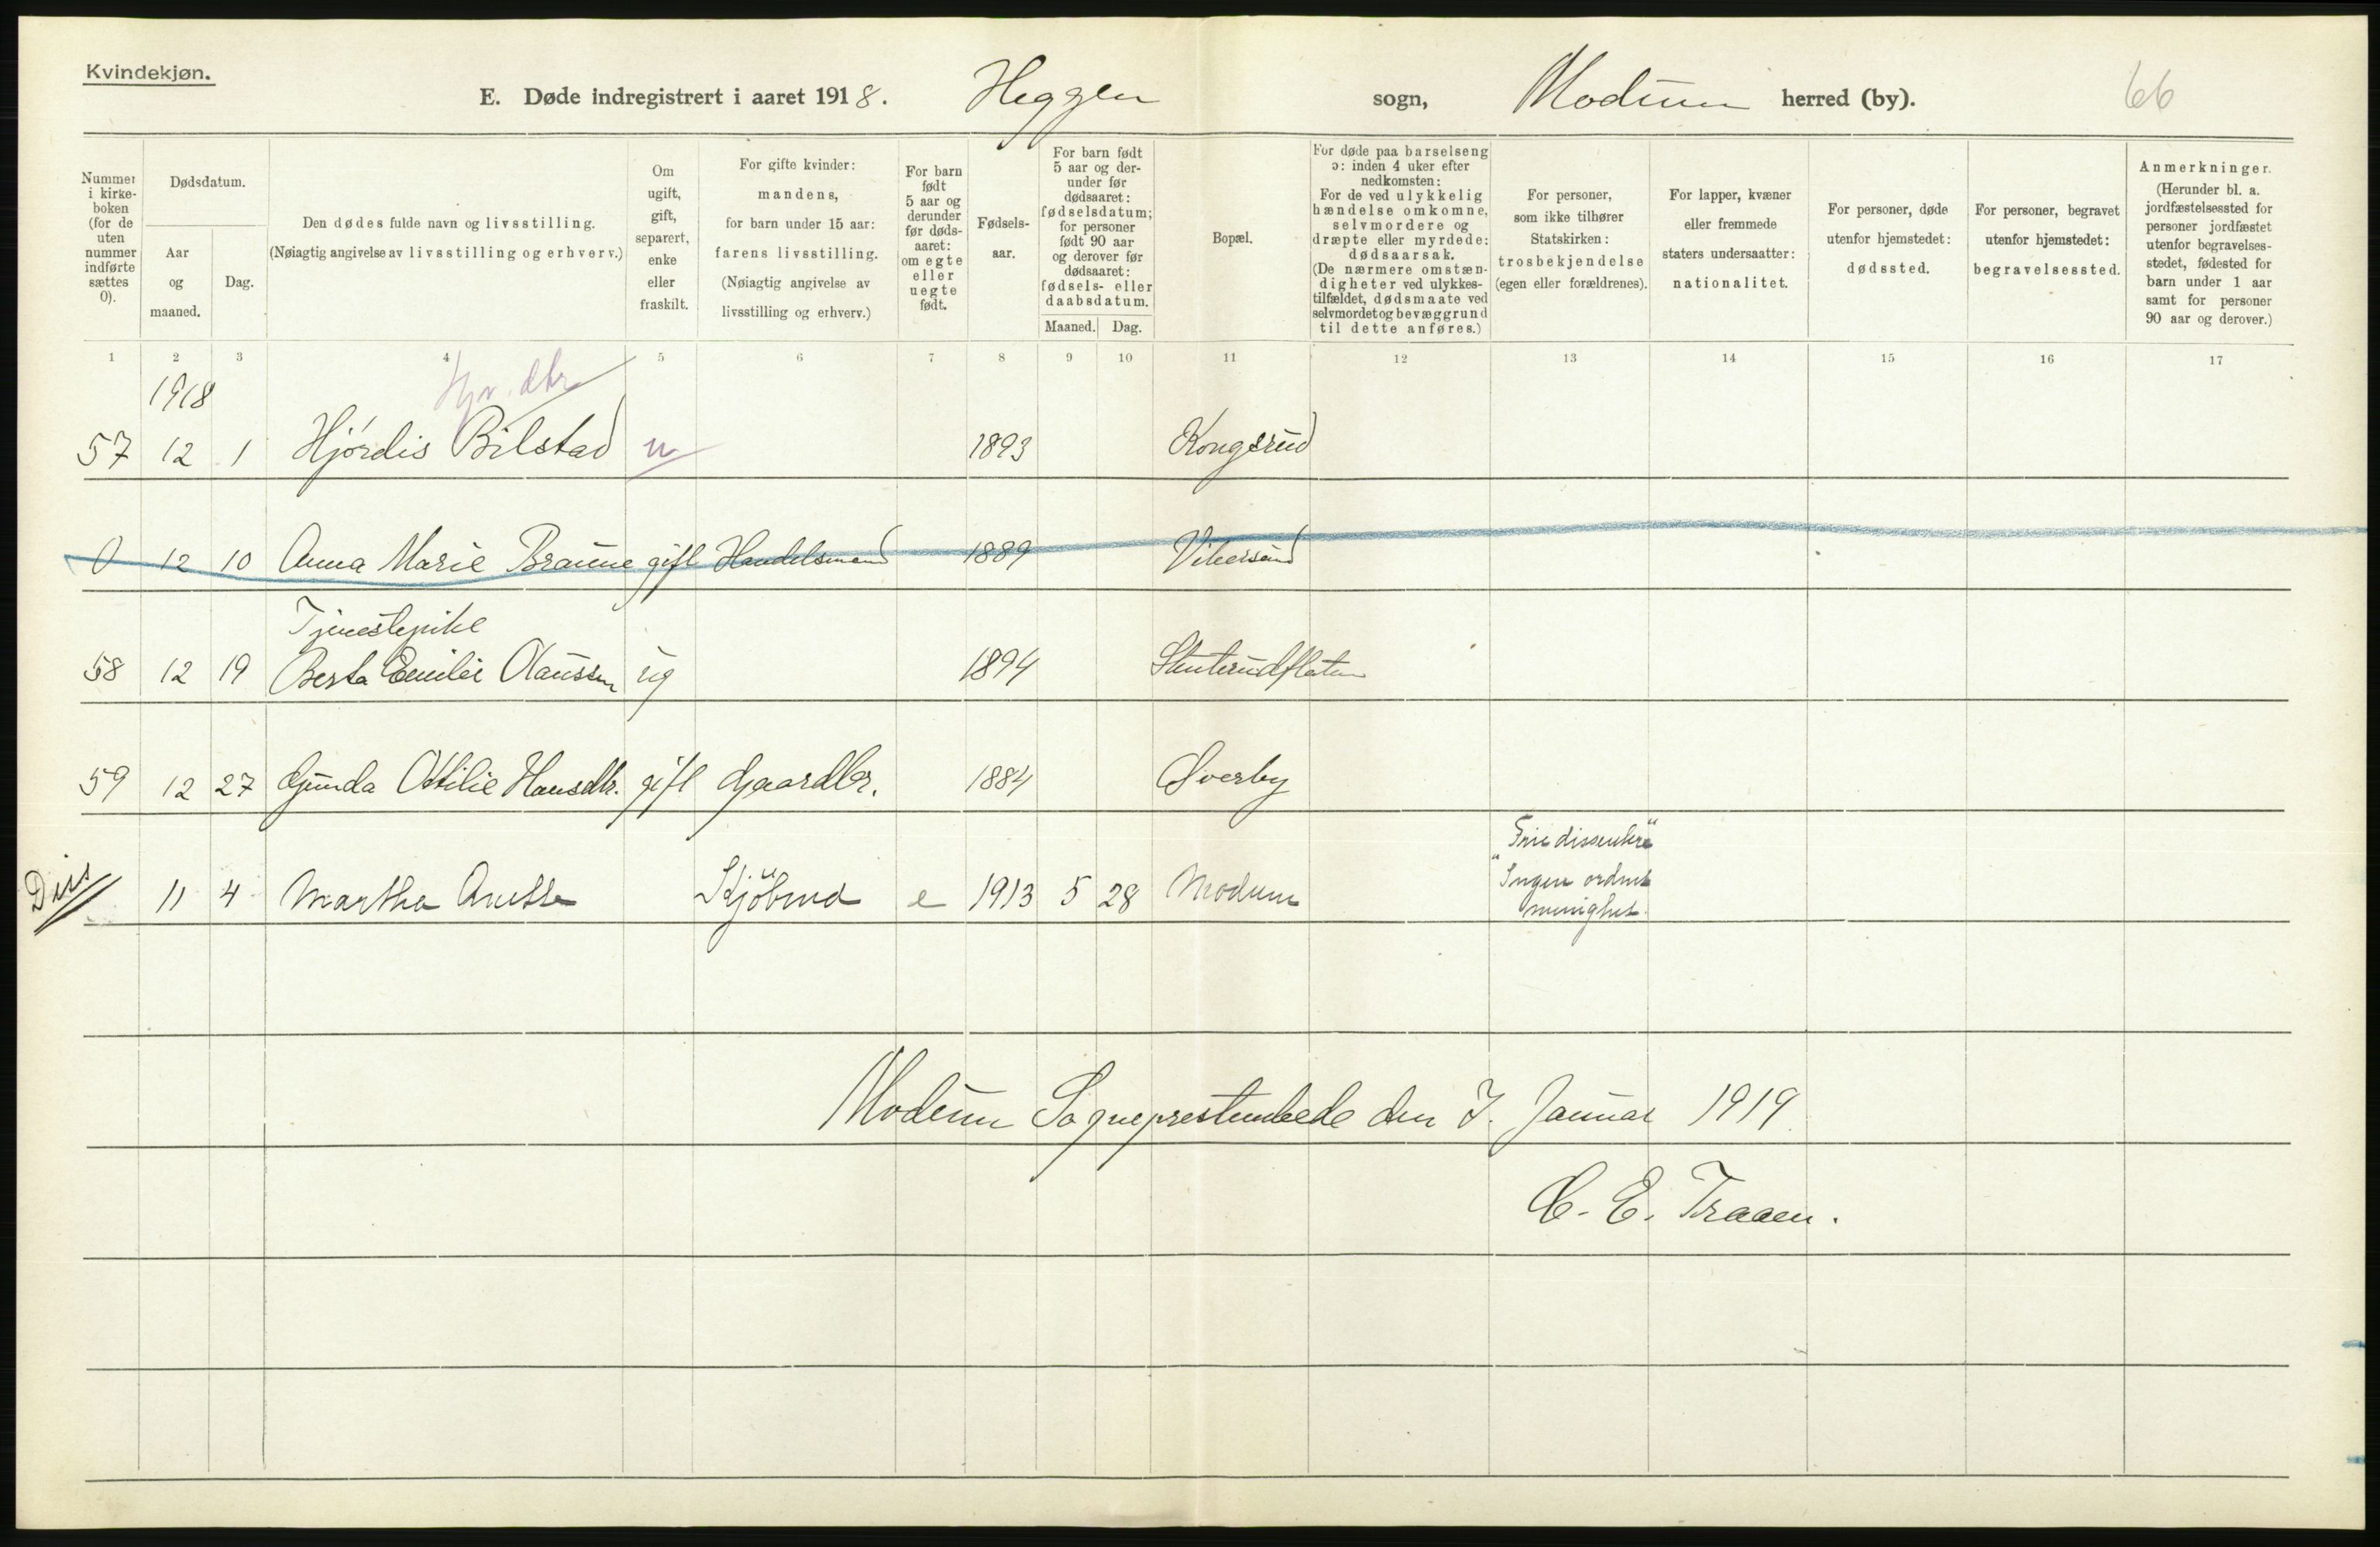 Kvindekjøn.
E. Døde indregistrert i aaret 1918. Heggen sogn, Modum herred (by). 66
Nummer i kirkeboken (for de uten nummer indførte sættes 0).
Dødsdatum.
Aar og maaned.
Dag.
Den dødes fulde navn og livsstilling.
(Nøiagtig angivelse av livsstilling og erhverv.)
Om ugift, gift, separert, enke eller fraskilt.
For gifte kvinder: mandens, for barn under 15 aar: farens livsstilling.
(Nøiagtig angivelse av livsstilling og erhverv.)
For barn født 5 aar og derunder før dødsaaret: om egte eller uegte født.
Fødselsaar.
For barn født 5 aar og derunder før dødsaaret: fødselsdatum; for personer født 90 aar og derover før dødsaaret: fødsels- eller daabsdatum.
Maaned. Dag.
Bopæl.
For døde paa barselseng ɔ: inden 4 uker efter nedkomsten: For de ved ulykkelig hændelse omkomne, selvmordere og dræpte eller myrdede: dødsaarsak. (De nærmere omstændigheter ved ulykkestilfældet, dødsmaate ved selvmordet og bevæggrund til dette anføres.)
For personer, som ikke tilhører Statskirken: trosbekjendelse (egen eller forældrenes).
For lapper, kvæner eller fremmede staters undersaatter: nationalitet.
For personer, døde utenfor hjemstedet: dødssted.
For personer, begravet utenfor hjemstedet: begravelsessted.
Anmerkninger. (Herunder bl. a. jordfæstelsessted for personer jordfæstet utenfor begravelsesstedet, fødested for barn under 1 aar samt for personer 90 aar og derover.)
1 2 3 4 5 6 7 8 9 10 11 12 13 14 15 16 17
1918 Hjv. dtr
57 12 1 Hjördis Bilstad u 1893 Kongsrud
0 12 10 Anna Marie Braune gift Handelsmand 1889 Vikersund
Tjenestepike
58 12 19 Berta Emilie Olaussen ug 1894
59 12 27 Gunda Otilie Hansdtr. gift Gaardbr. 1884 Överby
"Frie dissentere"
Diss 11 4 Martha Anette Kjöbmd e 1913 5 28 Modum "Ingen ordnet
menighet
Modum Sogneprestembede den 7. Januar 1919.
C. E. Traaen.